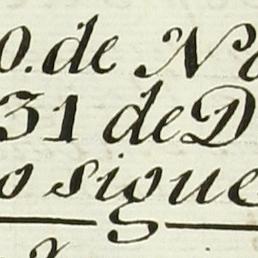 0. de N
31 de D
o sigue